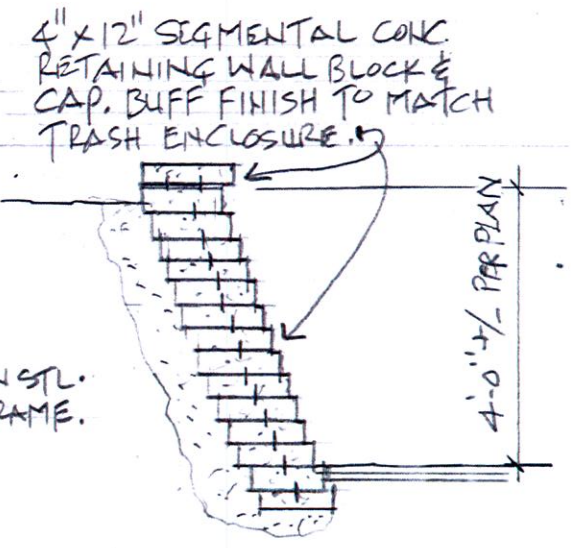 4" x 12" SEGMENTAL CONC.
RETAINING WALL BLOCK &
CAP. BUFF FINISH TO MATCH
TRASH ENCLOSURE.
4'-0" +/- PER PLAN
STL.